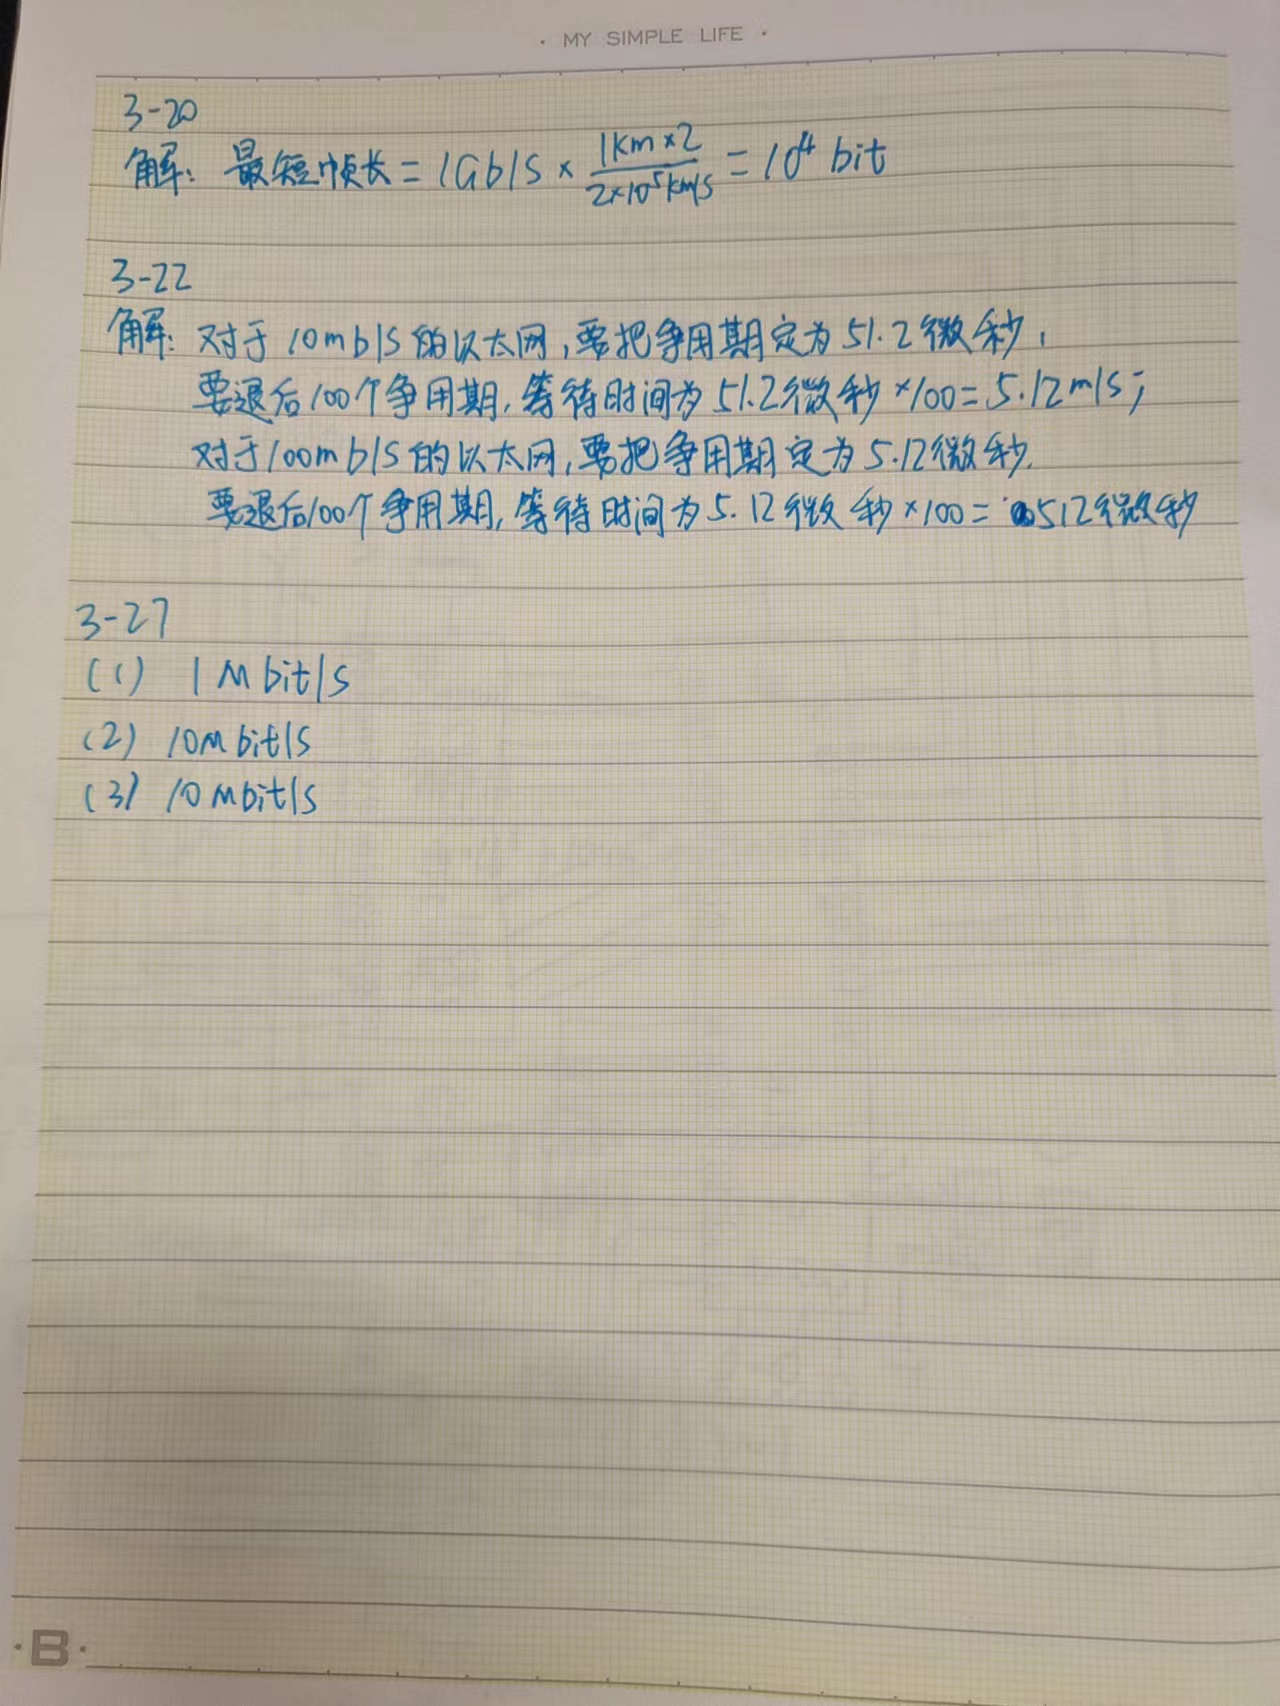 · MY SIMPLE LIFE ·
3-20
解: 最短帧长 = 1Gb/s × 1km×2 / 2×10⁵km/s = 10⁴ bit
3-22
解: 对于10mb/s的以太网,要把争用期定为51.2微秒,
要退后100个争用期,等待时间为51.2微秒×100=5.12m/s;
对于100mb/s的以太网,要把争用期定为5.12微秒.
要退后100个争用期,等待时间为5.12微秒×100=512微秒
3-27
(1) 1Mbit/s
(2) 10Mbit/s
(3) 10Mbit/s
·B·